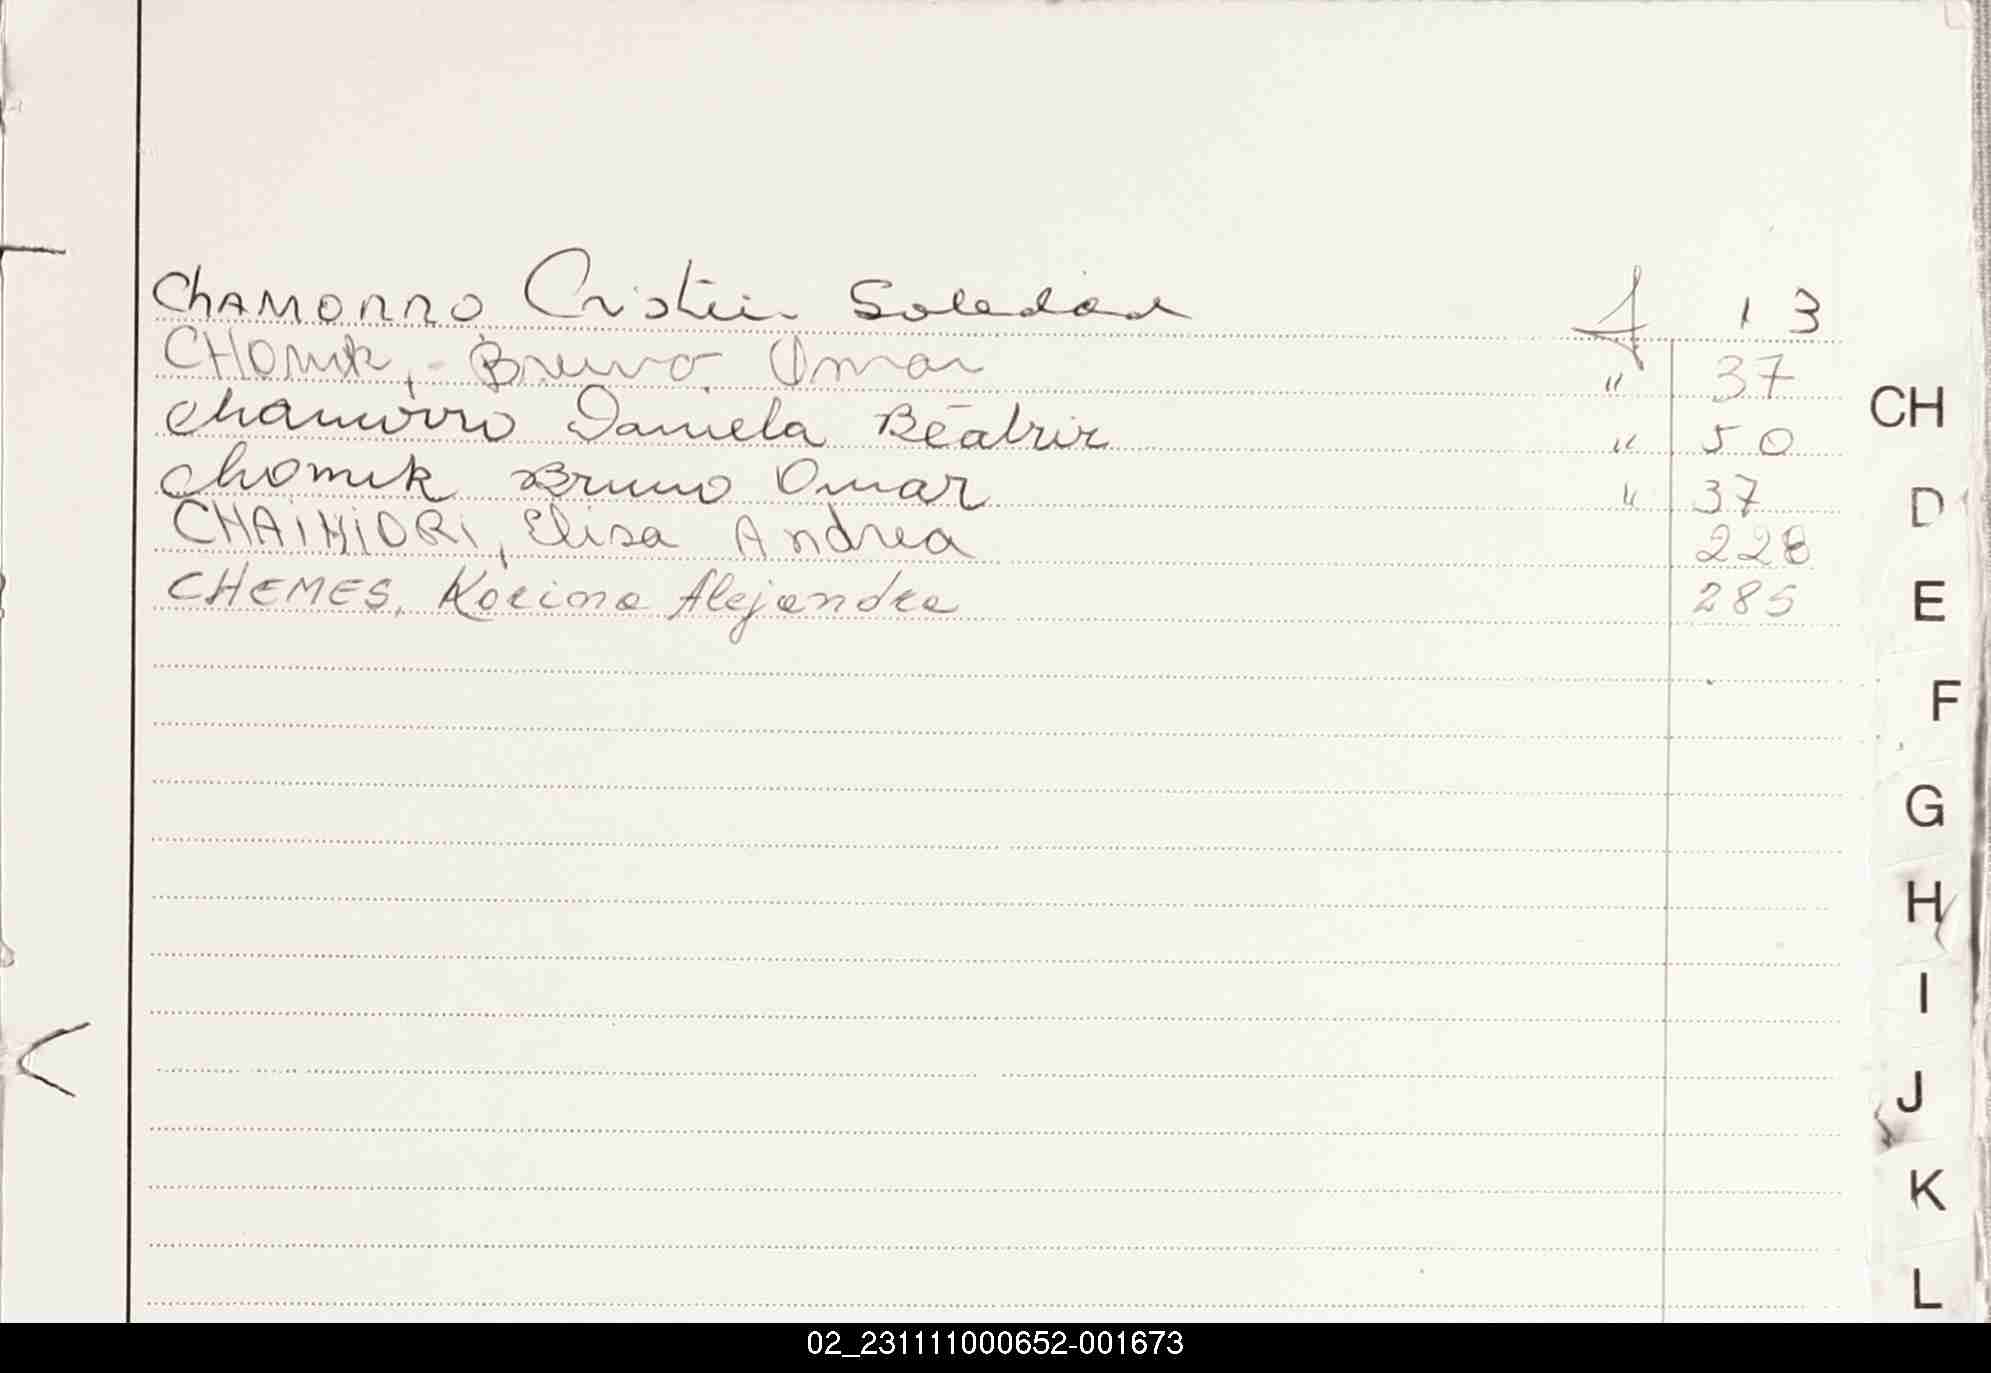 ChAMORRO Cristin Soledad f 13
CHOmik, - Bruno Omar " 37
Chamorro Daniela Beatriz " 50
Chomik Bruno Omar " 37
Elisa Andrea 228
CHEMES, Karina Alejandra 285
CH
D
E
F
G
H
I
J
K
L
02_231111000652-001673